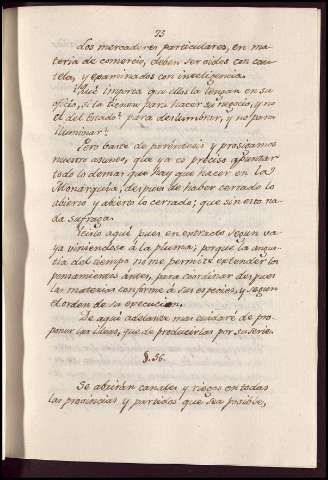 73
Los mercaderes particulares, en ma-
teria de comercio, deben ser oidos con cau-
tela, y examinados con inteligencia.
Què importa que ellos la tengan en su
oficio, si la tienen para hacer su negocio, y no
el del Estado? para deslumbrar, y no para
iluminar?
Pero baste de paréntesis y prosigamos
nuestro asunto, que ya es preciso apuntar
todo lo demas que hay que hacer en la
Monarquía, despues de haber cerrado lo
abierto y abierto lo cerrado; que sin esto na-
da sufraga.
aquí pues en extracto segun va-
ya viniendose á la pluma; porque la angus-
tia del tiempo no me permite extender los
pensamientos ántes, para coordinar despues
las materias conforme á sus especies, y segun
el orden de su execucion.
De aquí adelante mas cuidaré de pro-
poner las ideas, que de producirlas por su serie.
§. 56.
Se abrirán canales y riegos en todas
las provincias y partidos que sea posible,